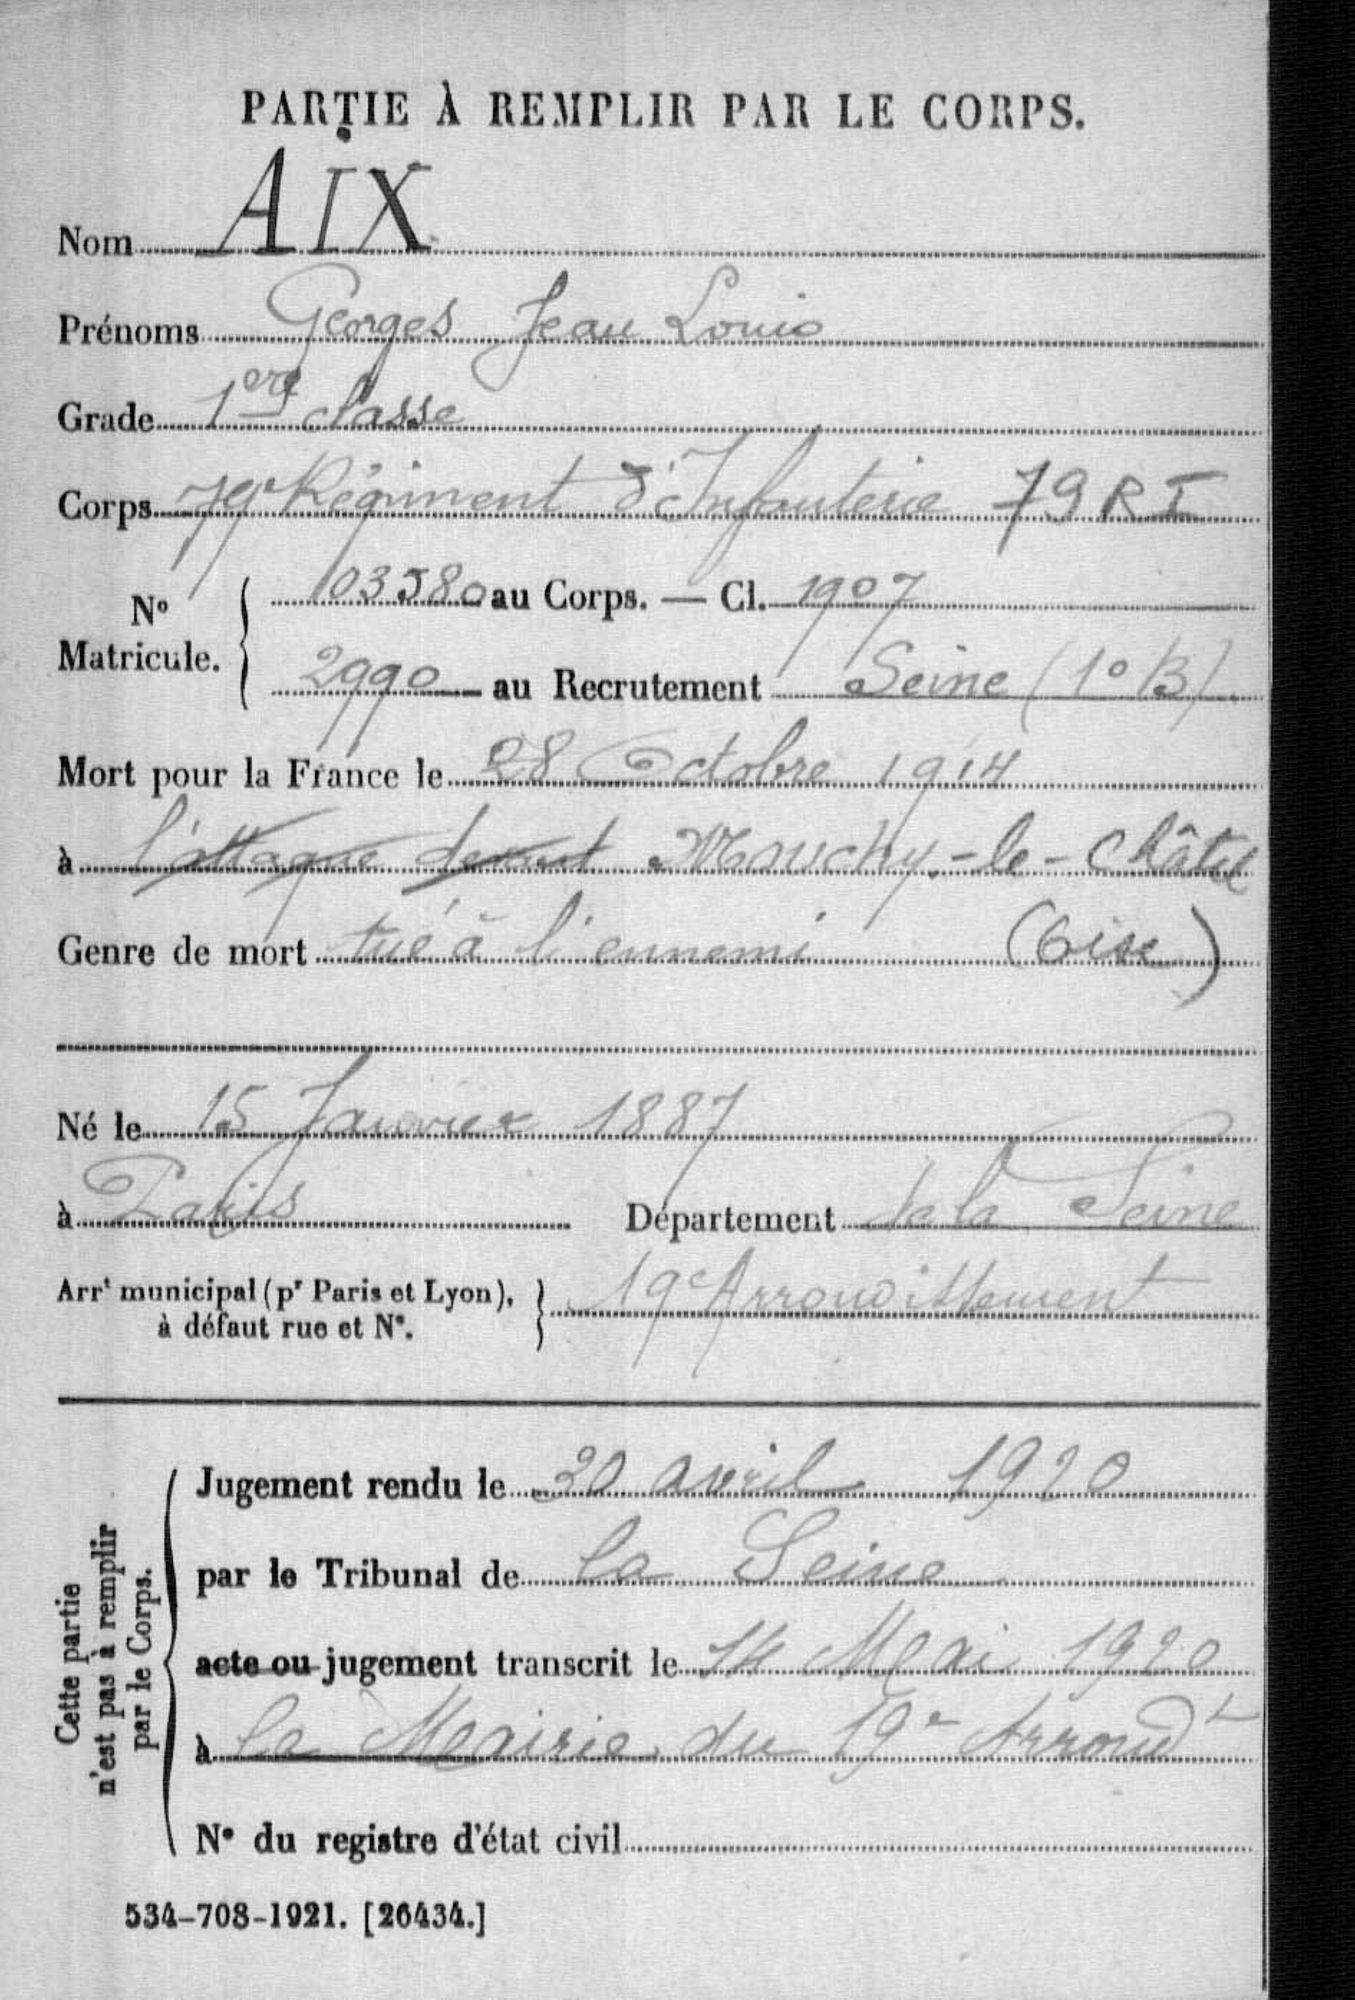 PARTIE À REMPLIR PAR LE CORPS.
Nom AIX
Prénoms Georges Jean Louis
Grade 1ere classe
Corps 79e Régiment d'Infanterie 79 R I
No Matricule. 103580 au Corps. — Cl. 1907
2990 au Recrutement Seine (1o B)
Mort pour la France le 28 Octobre 1914
à l'attaque devant Mouchy-le-Châtel
Genre de mort tué à l'ennemi (Oise)
Né le 15 Janvier 1887
à Paris Département de la Seine
Arrt municipal (pr Paris et Lyon), à défaut rue et No. 19e Arrondissement
Cette partie n'est pas à remplir par le Corps.
Jugement rendu le 30 avril 1920
par le Tribunal de la Seine
acte ou jugement transcrit le 14 Mai 1920
à la Mairie du 19e Arrondt
No du registre d'état civil
534-708-1921. [26434.]